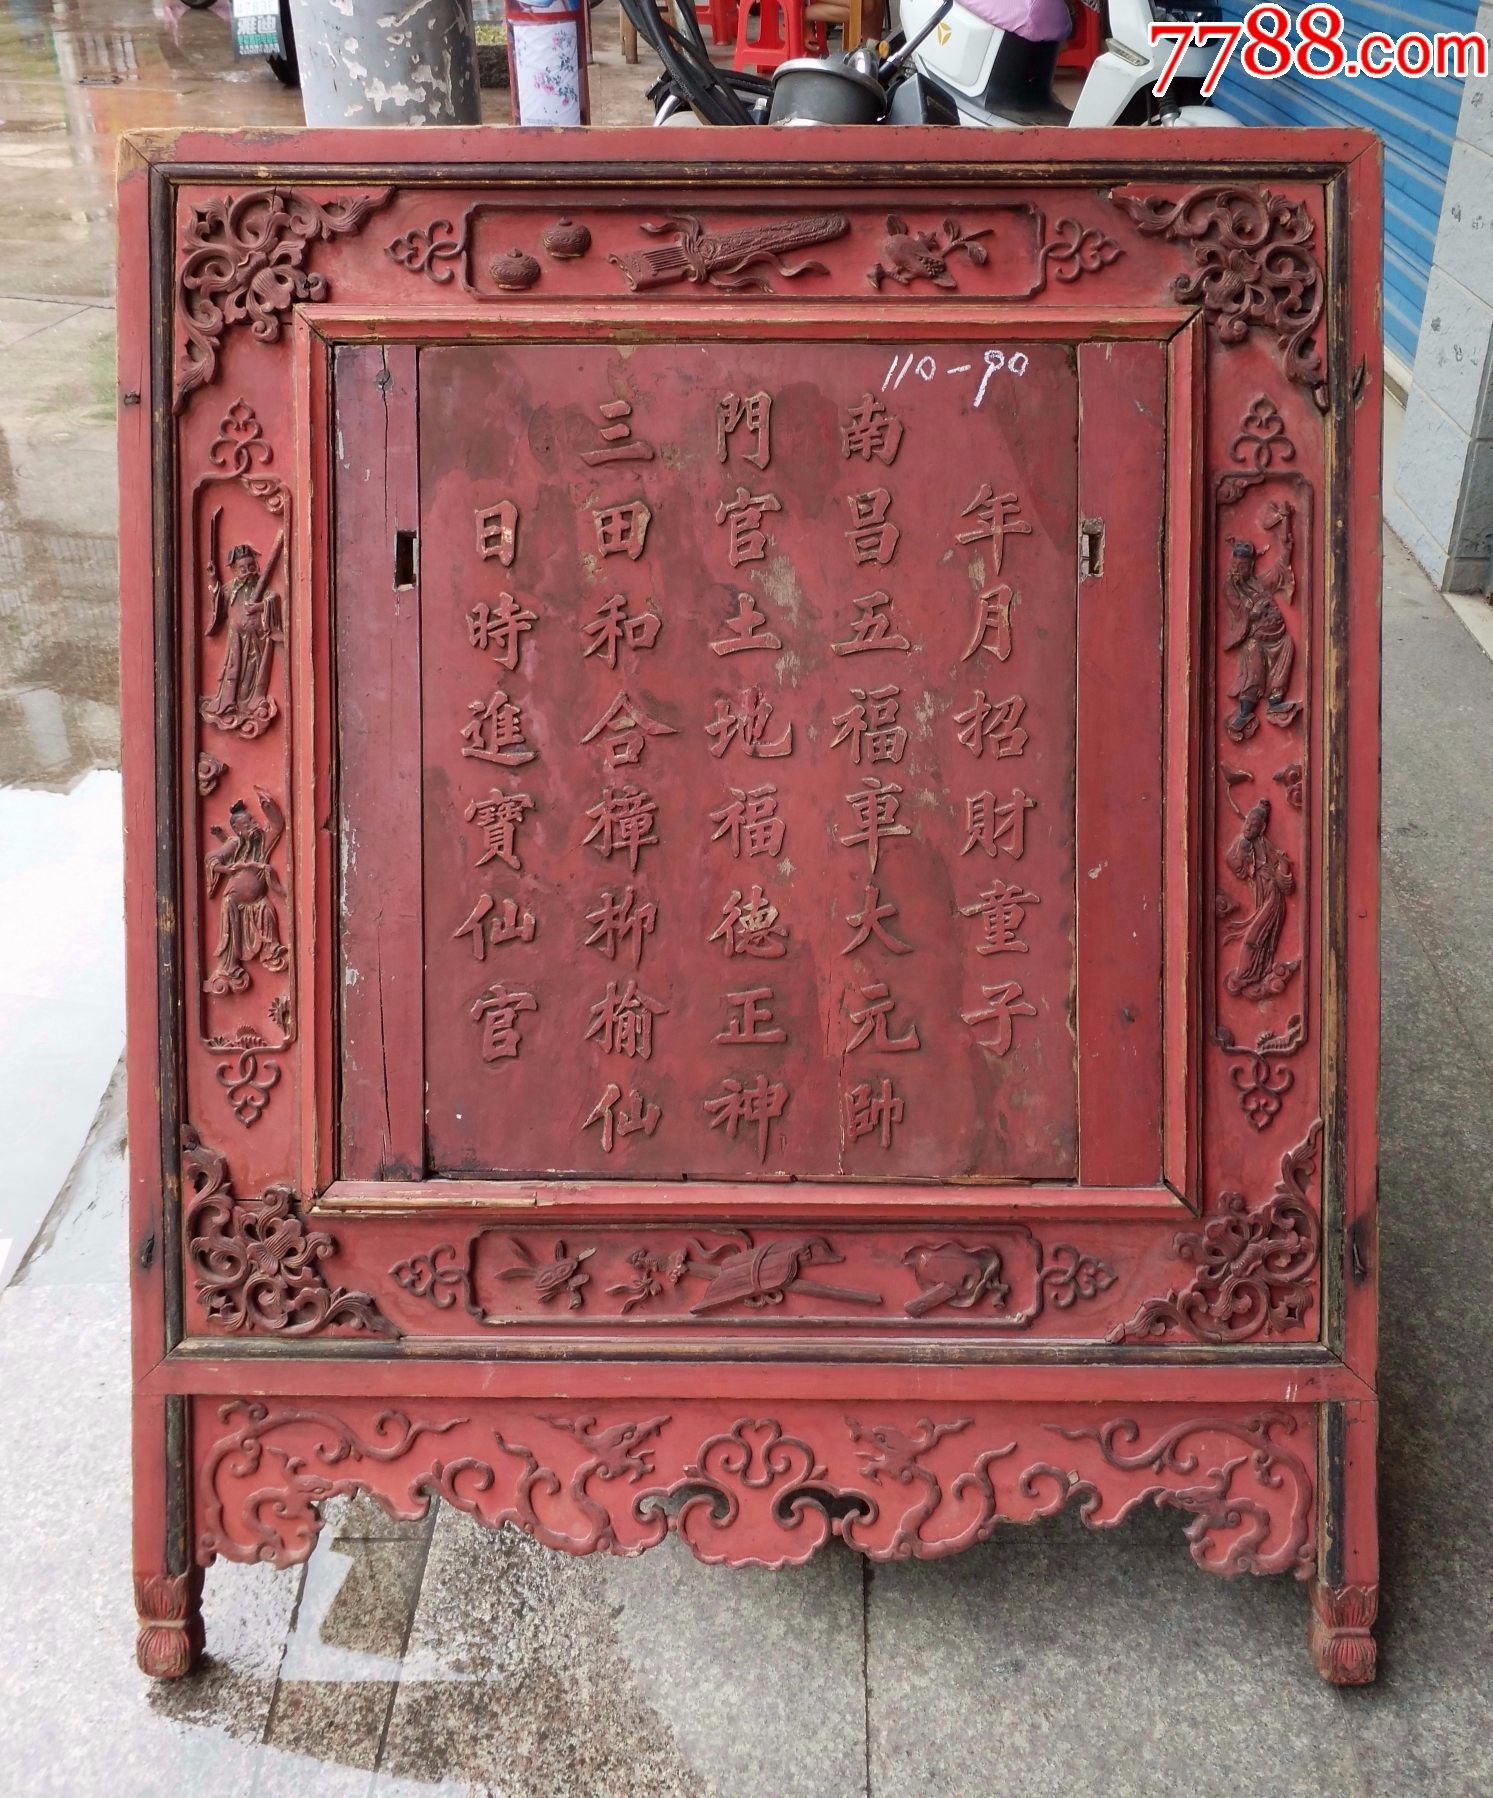 7788.com
110-90
年月招財童子
南昌五福車大元帥
門官土地福德正神
三田和合撞柳榆仙
日時進寶仙官